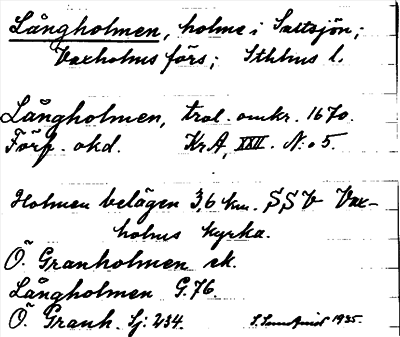 Långholmen, holme i Saltsjön;
Vaxholms förs; Sthlms l.
Långholmen, trol. omkr. 1670.
Förf. okd. KrA, XXII. N:o 5.
Holmen belägen 3,6 km. SSV Vax-
holms kyrka.
Ö. Granholmen ek.
Långholmen G.76.
Ö. Granh. Sj. 234. 1935.